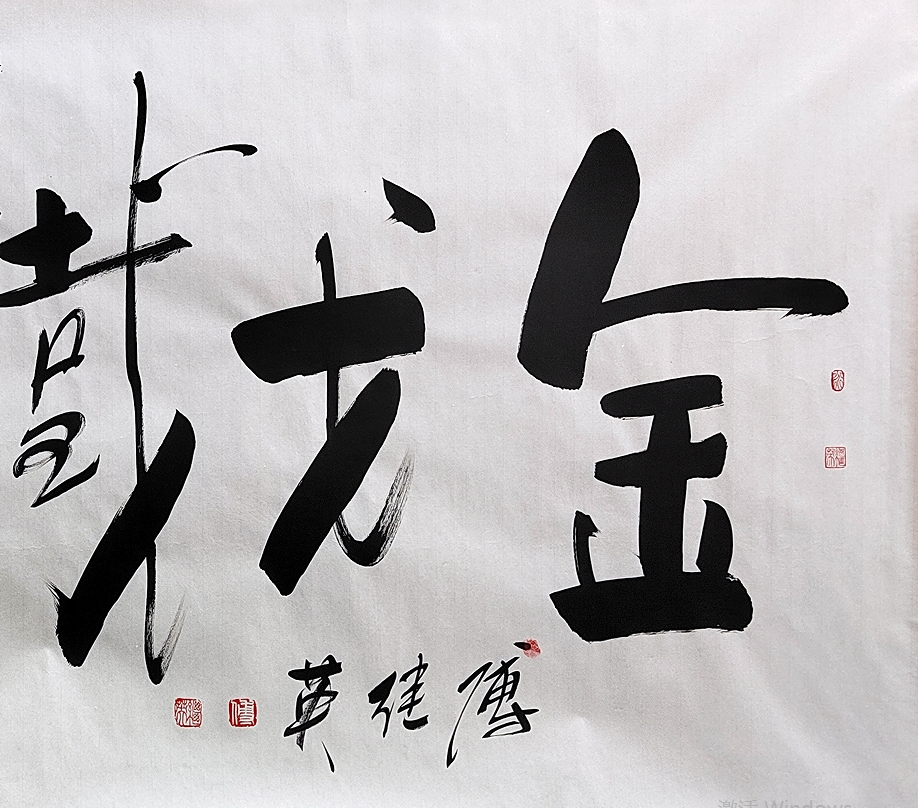 金戈鐵
傅继英
激活 Windows